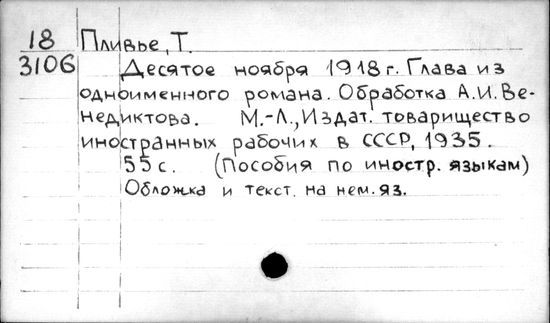 18 Пливье, Т.
3106 Десятое ноября 1918 г. Глава из
одноименного романа. Обработка А.И. Ве-
недиктова. М.-Л., Издат. товарищество
иностранных рабочих в СССР, 1935.
55 с. (Пособия по иностр. языкам)
Обложка и текст. на нем. яз.